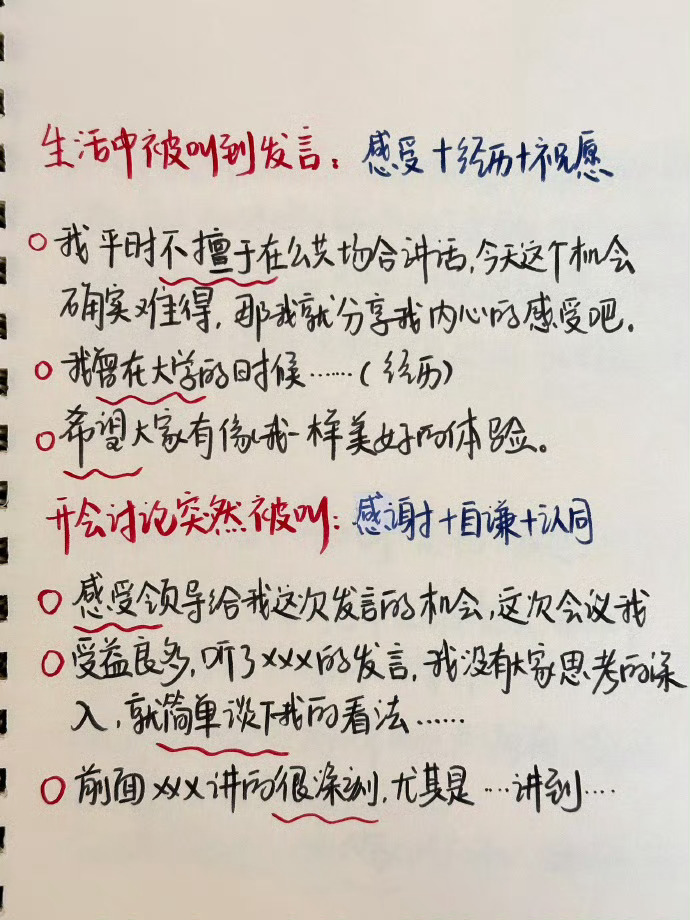 生活中被叫到发言：感受+经历+祝愿
我平时不擅于在公共场合讲话，今天这个机会
确实难得，那我就分享我内心的感受吧．
我曾在大学的时候……（经历）
希望大家有像我一样美好的体验。
开会讨论突然被叫：感谢+自谦+认同
感受领导给我这次发言的机会，这次会议我
受益良多，听了xxx的发言，我没有大家思考的深
入，就简单谈下我的看法……
前面xxx讲的很深刻，尤其是…讲到…